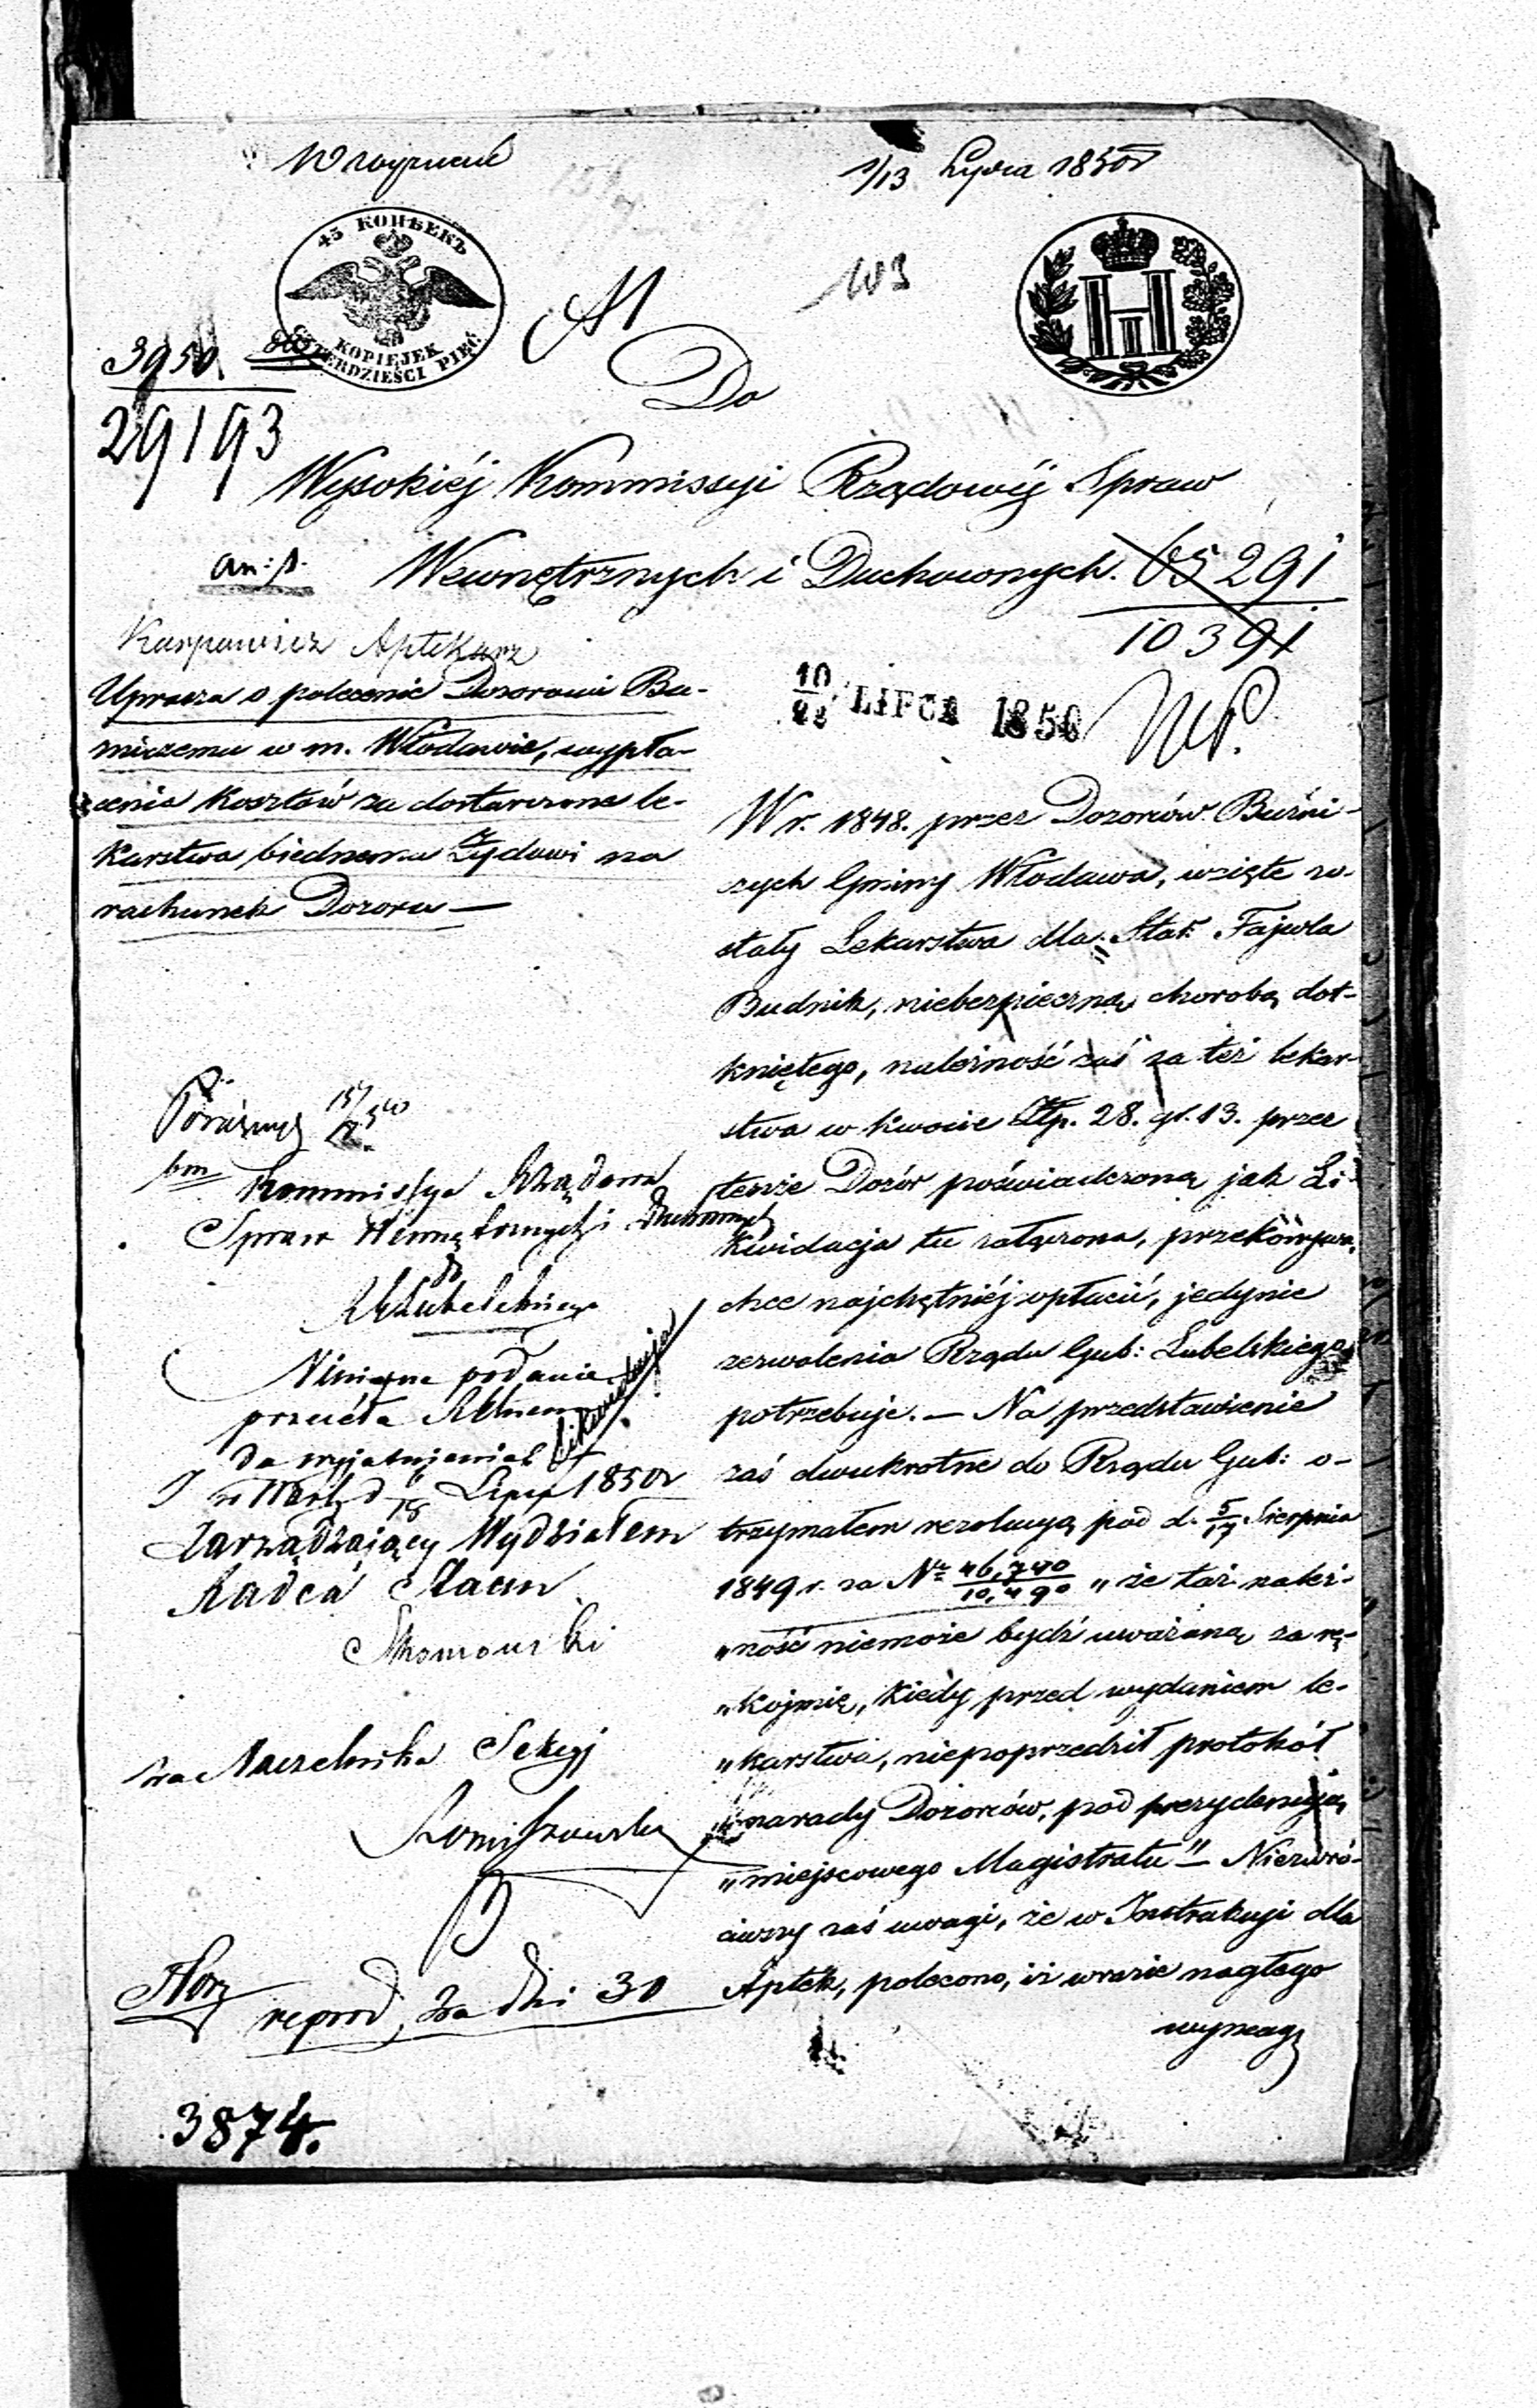 1/13 Lipca 1850r
45 КОПѢЕКЪ
KOPIEJEK
CZTERDZIEŚCI PIĘĆ
103
3950.
29193
Do
Wysokiéj Kommissyi Rządowéj Spraw
Wewnętrznych i Duchownych.
65291
10391
10/22 LIPCA 1850
Karpowicz Aptekarz
Uprasza o polecenie Dozorowi Bu-
żniczemu w m. Włodawie, wypła-
cenia kosztów za dostarczone le-
karstwa biednemu Żydowi na
rachunek Dozoru —
W r. 1848. przez Dozorców Buźni-
czych Gminy Włodawa, wzięte zo-
stały Lekarstwa dla Stak: Fajwla
Budnik, niebezpieczną chorobą dot-
kniętego, należność zaś za też lekar-
stwa w kwocie Złp. 28. gr. 13. przez
tenże Dozór poświadczoną, jak Li-
kwidacja tu załączona, przekonywa,
chce najchętniéj opłacić, jedynie
zezwolenia Rządu Gub: Lubelskiego
potrzebuje. — Na przedstawienie
zaś dwukrotne do Rządu Gub: o-
trzymałem rezolucyą pod d. 5/17 Sierpnia
1849 r. za Nr 46,740/10,490 „że taż należ-
„ność niemoże bydź uważaną za rę-
„kojmię, kiedy przed wydaniem le-
„karstwa, niepoprzedził protokół
„narady Dozorców, pod prezydencyą
„miejscowego Magistratu" — Niezwró-
ciwszy zaś uwagi, że w Instrukcyi dla
Aptek, polecono, iż w razie nagłego
wymaga
Kommissya Rządowa
Spraw Wewnętrznych i Duchownych
do
RGLubelskiego
Niniejsze podanie
przesyła RGbnemu
do wyjaśnienia
Likwidacja
Lipca 1850r
Zarządzający Wydziałem
Radca Stanu
za Naczelnika Sekcyj
reprod. za dni 30
3874.